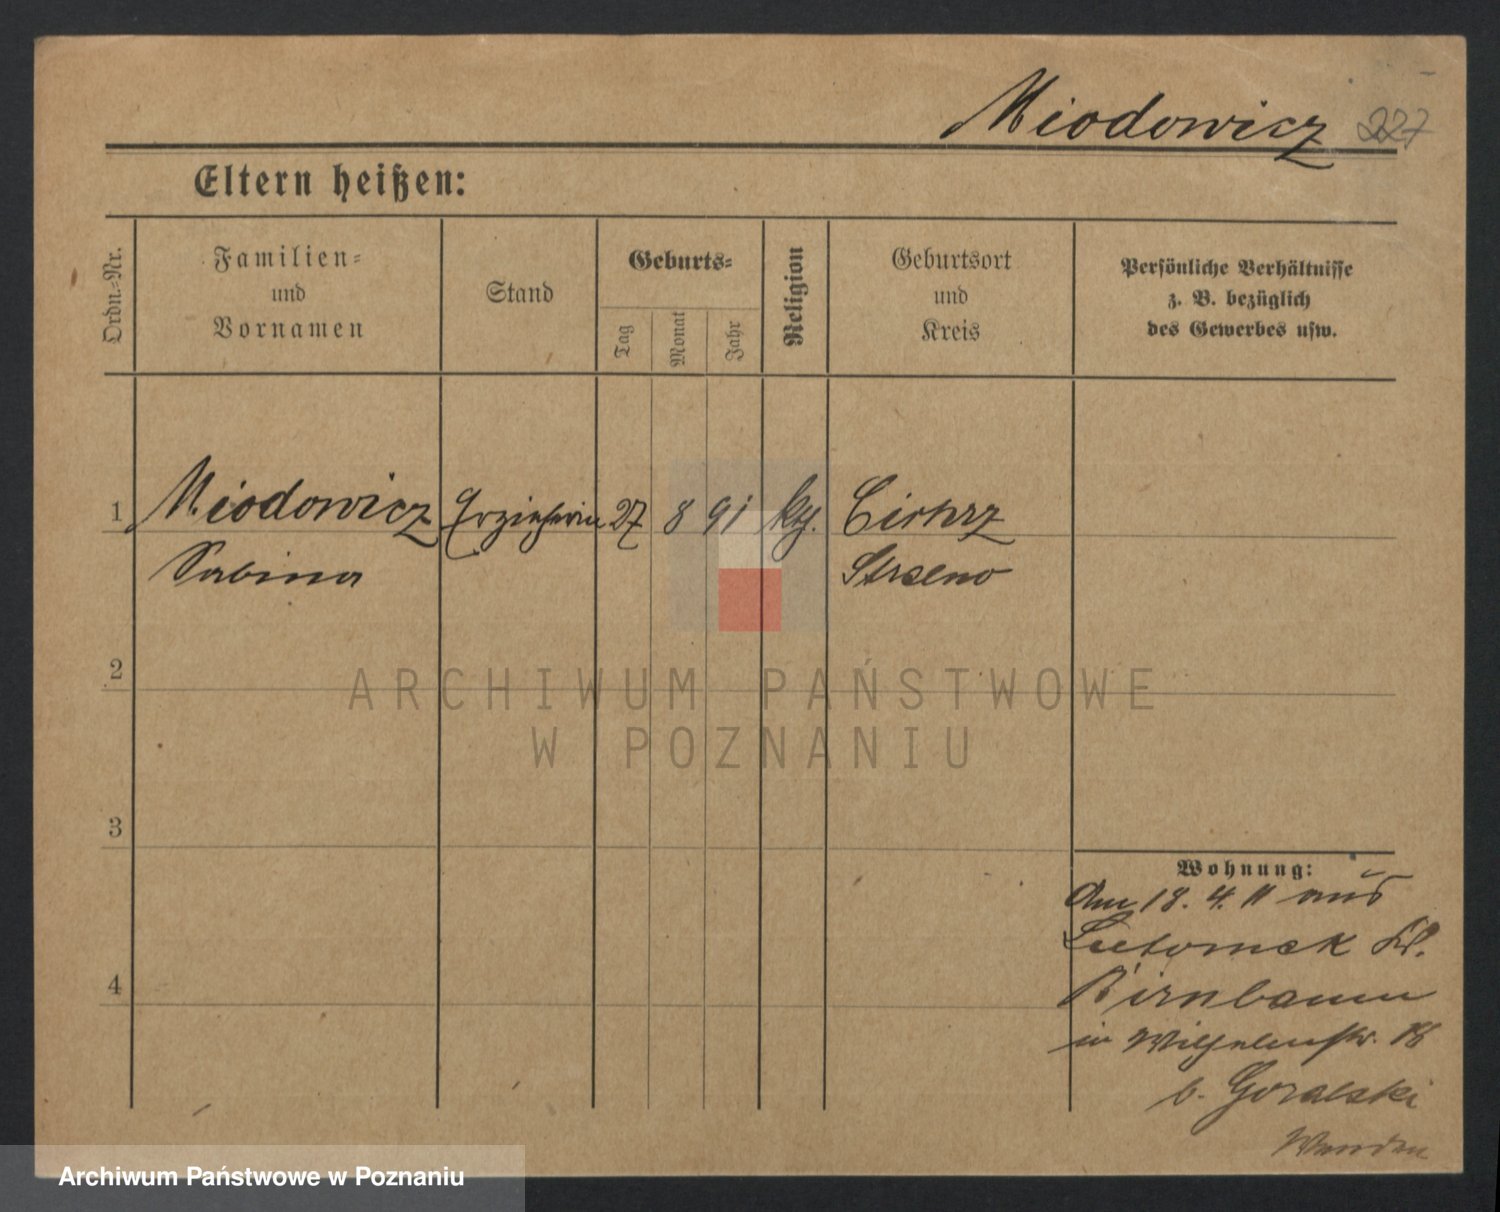 Miodowicz 227
Eltern heißen:
Ordn.-Nr.
Familien-
und
Vornamen
Stand
Geburts-
Tag
Monat
Jahr
Religion
Geburtsort
und
Kreis
Persönliche Verhältnisse
z. B. bezüglich
des Gewerbes usw.
1 Miodowicz Erzieherin 27 8 91 kth.
Sabina Strelno
2
3
4
Wohnung:
Am 18. 4. 11 aus
Lutomek Kr.
Birnbaum
in Wilhelmstr. 18
b. Goralski
Wenden
ARCHIWUM PAŃSTWOWE
W POZNANIU
Archiwum Państwowe w Poznaniu